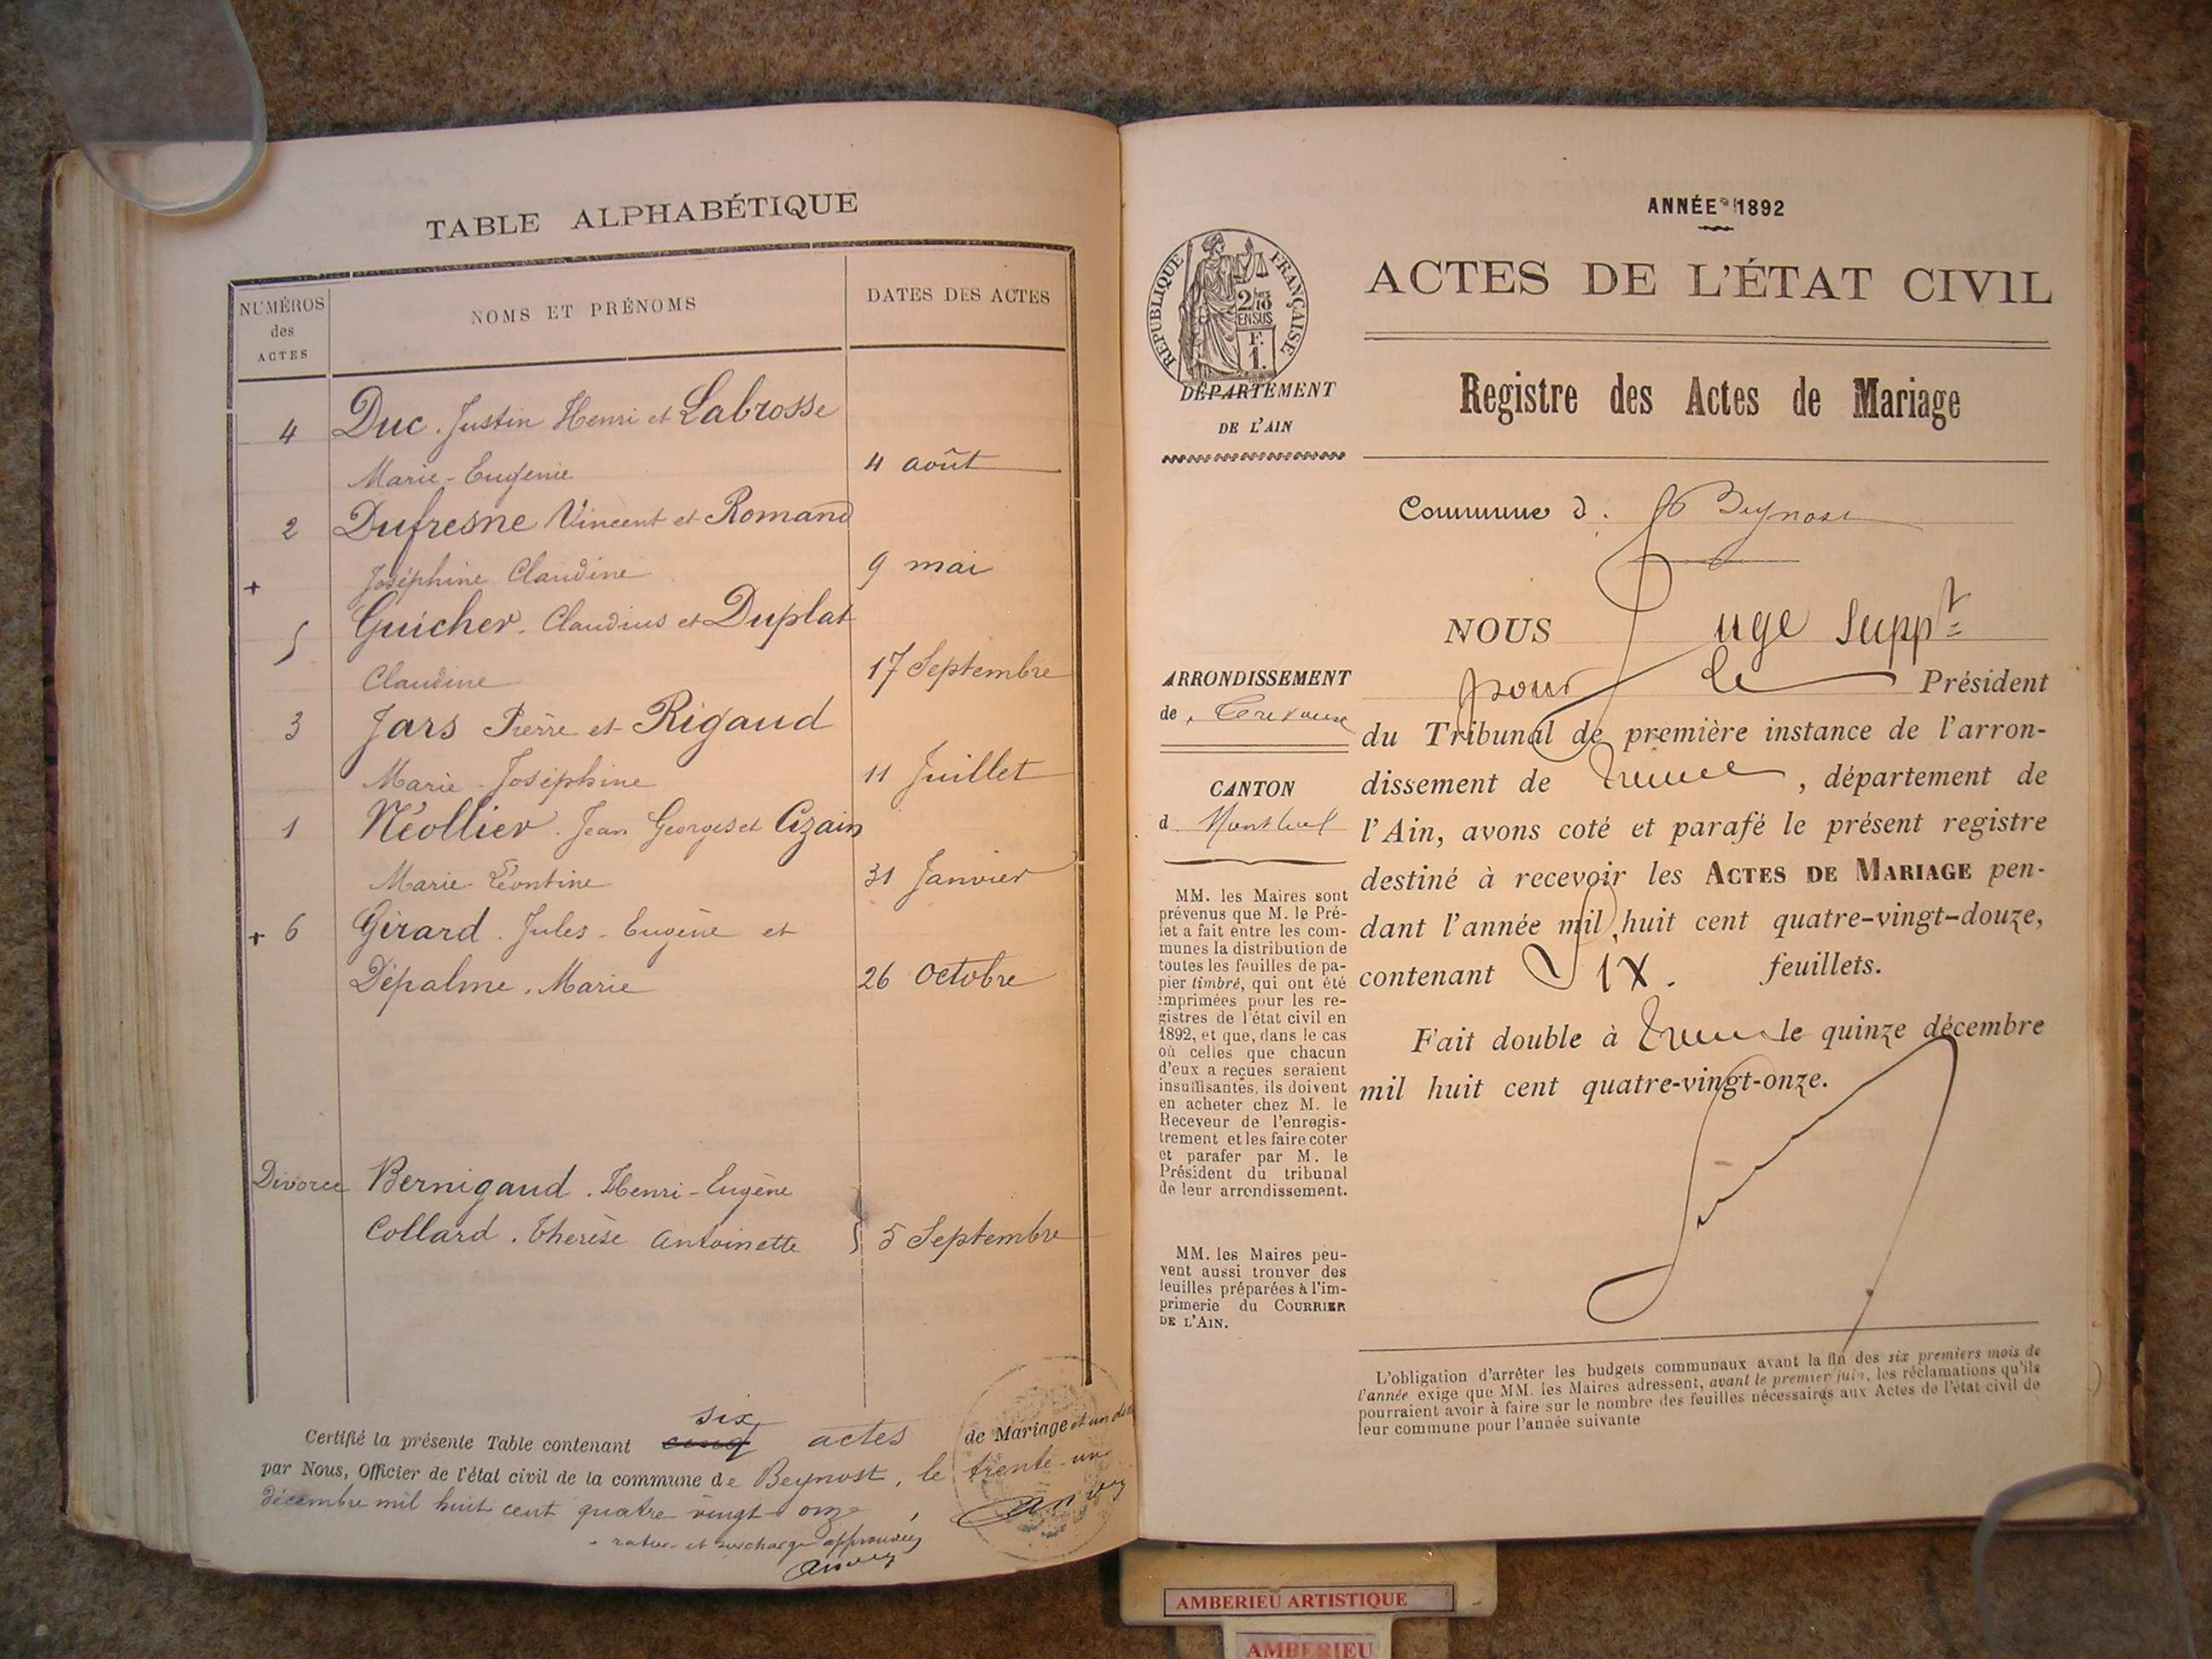 TABLE ALPHABÉTIQUE
NUMÉROS
des
ACTES
NOMS ET PRÉNOMS
DATES DES ACTES
4 Duc. Justin Henri et Labrosse
Marie-Eugénie 4 août
2 Dufresne Vincent et Romand
+ Joséphine Claudine 9 mai
5 Guicher. Claudius et Duplat
Claudine 17 Septembre
3 Jars Pierre et Rigaud
Marie Joséphine 11 Juillet
1 Néollier. Jean Georges et Cizain
Marie Léontine 31 Janvier
+ 6 Girard. Jules-Eugène et
Dépalme. Marie 26 octobre
Divorce Bernigaud. Henri-Eugène
Collard. Therèse Antoinette } 5 Septembre
six
Certifié la présente Table contenant cinq actes de Mariage et un
par Nous, Officier de l'état civil de la commune de Beynost, le trente-un
décembre mil huit cent quatre vingt onze
rature et surcharge approuvées
ANNÉE 1892
ACTES DE L'ÉTAT CIVIL
Registre des Actes de Mariage
RÉPUBLIQUE FRANÇAISE
2/10
EN SUS
F.
1.
DÉPARTEMENT
DE L'AIN
Commune d. Beynost
NOUS Juge Suppt
pour le Président
ARRONDISSEMENT
de Trévoux
du Tribunal de première instance de l'arron-
dissement de Trévoux, département de
CANTON
d Montluel
l'Ain, avons coté et parafé le présent registre
destiné à recevoir les ACTES DE MARIAGE pen-
dant l'année mil huit cent quatre-vingt-douze,
contenant Six. feuillets.
Fait double à Trévoux le quinze décembre
mil huit cent quatre-vingt-onze.
MM. les Maires sont
prévenus que M. le Pré-
fet a fait entre les com-
munes la distribution de
toutes les feuilles de pa-
pier timbré, qui ont été
imprimées pour les re-
gistres de l'état civil en
1892, et que, dans le cas
où celles que chacun
d'eux a reçues seraient
insuffisantes, ils doivent
en acheter chez M. le
Receveur de l'enregis-
trement et les faire coter
et parafer par M. le
Président du tribunal
de leur arrondissement.
MM. les Maires peu-
vent aussi trouver des
feuilles préparées à l'im-
primerie du COURRIER
DE L'AIN.
L'obligation d'arrêter les budgets communaux avant la fin des six premiers mois de
l'année exige que MM. les Maires adressent, avant le premier juin, les réclamations qu'ils
pourraient avoir à faire sur le nombre des feuilles nécessaires aux Actes de l'état civil de
leur commune pour l'année suivante
AMBERIEU ARTISTIQUE
AMBERIEU